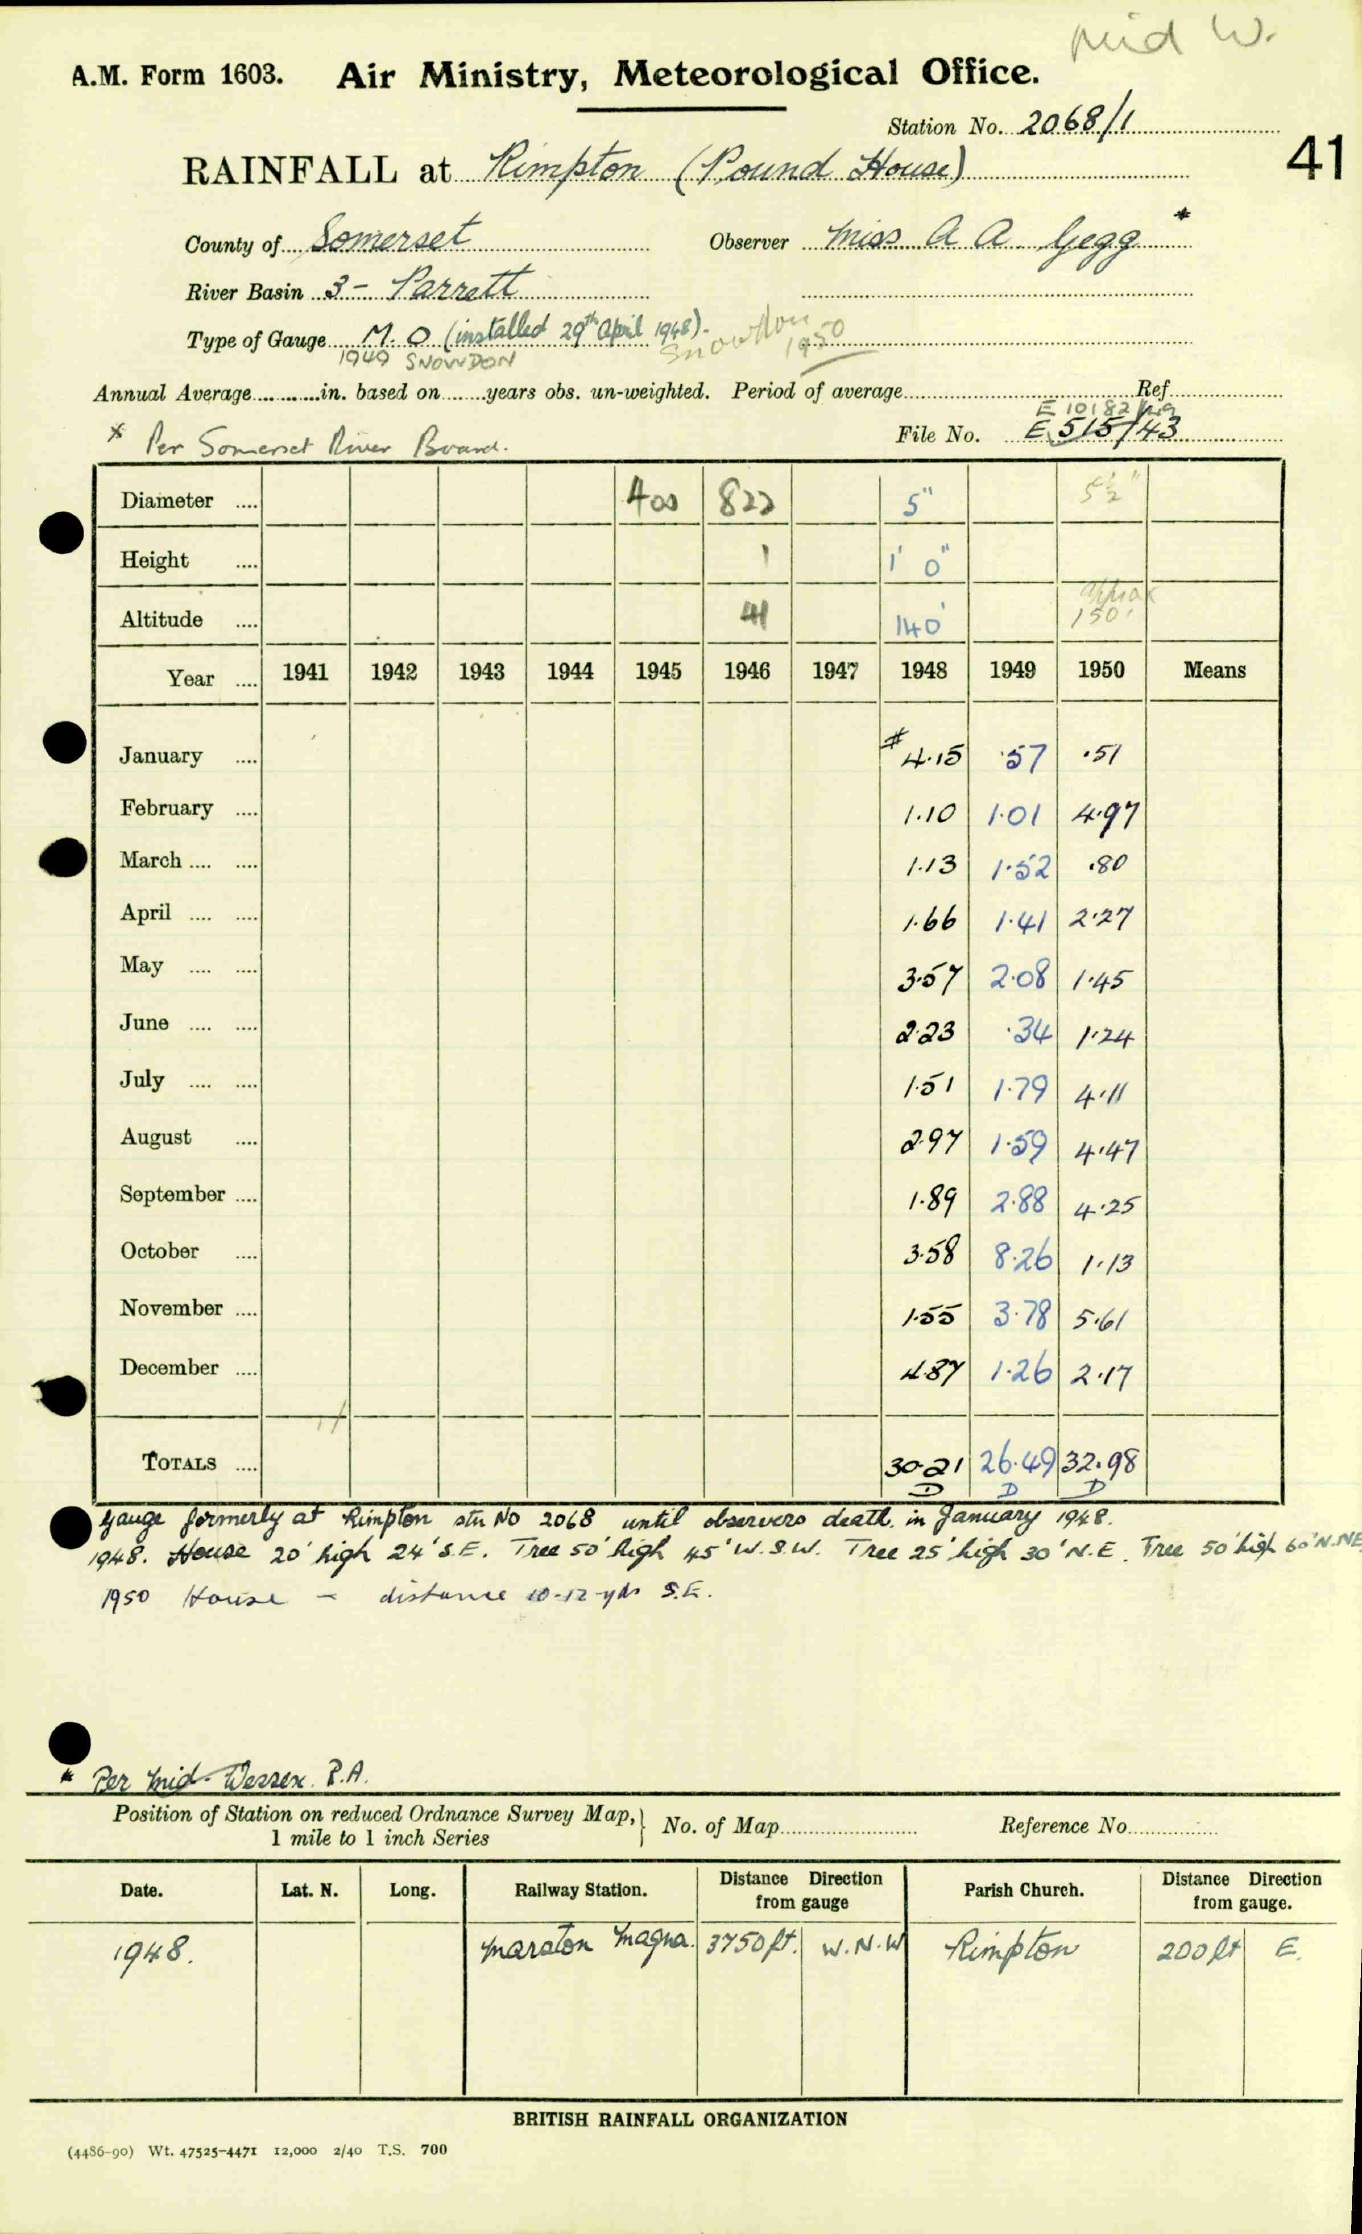 Mid W.
A.M. Form 1603. Air Ministry, Meteorological Office.
Station No. 2068/1
41
RAINFALL at Rimpton (Pound House)
County of Somerset Observer Miss A A Gegg *
River Basin 3- Parrett
Type of Gauge M.O (installed 29th April 1948). Snowdon 1950
1949 SNOWDON
Annual Average in. based on years obs. un-weighted. Period of average Ref
E 10182/49
* Per Somerset River Board. File No. E 515/43
Diameter 400 822 5" 5½"
Height 1 1' 0"
Altitude 41 140' approx 150'
Year 1941 1942 1943 1944 1945 1946 1947 1948 1949 1950 Means
January # 4.15 .57 .51
February 1.10 1.01 4.97
March 1.13 1.52 .80
April 1.66 1.41 2.27
May 3.57 2.08 1.45
June 2.23 .34 1.24
July 1.51 1.79 4.11
August 2.97 1.59 4.47
September 1.89 2.88 4.25
October 3.58 8.26 1.13
November 1.55 3.78 5.61
December 4.87 1.26 2.17
TOTALS 30.21 26.49 32.98
D D D
Gauge formerly at Rimpton stn No 2068 until observers death in January 1948.
1948. House 20' high 24' S.E. Tree 50' high 45' W.S.W. Tree 25' high 30' N.E. Tree 50' high 60' N.NE
1950 House - distance 10-12 yds S.E.
* Per Mid-Wessex. P.A.
Position of Station on reduced Ordnance Survey Map, 1 mile to 1 inch Series No. of Map Reference No.
Date. Lat. N. Long. Railway Station. Distance Direction from gauge Parish Church. Distance Direction from gauge.
1948. Marston Magna. 3750 ft. W.N.W Rimpton 200 ft E.
BRITISH RAINFALL ORGANIZATION
(4486-90) Wt. 47525-4471 12,000 2/40 T.S. 700